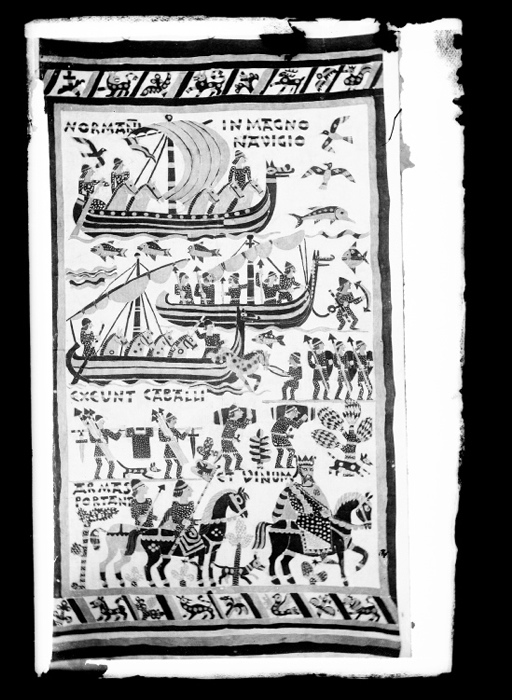 NORMAÑI
IN MAGNO
NAVIGIO
EXEUNT CABALLI
ET VINUM
ARMAS
PORTANT